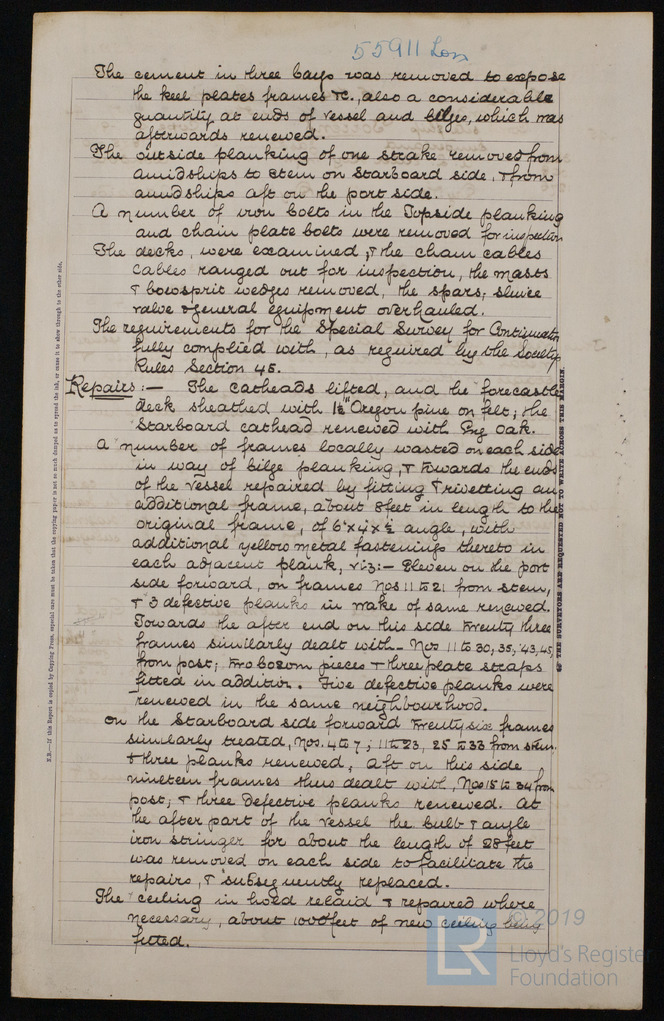 55911 Lon
The cement in three bays was removed to expose
the keel plates frames &c., also a considerable
quantity at ends of vessel and bilges, which was
afterwards renewed.
The outside planking of one strake removed from
amidships to stem on Starboard side, & from
amidships aft on the port side.
A number of iron bolts in the Topside planking
and chain plate bolts were removed for inspection
The decks, were examined, & the chain cables
cables ranged out for inspection, the masts
& bowsprit wedges removed, the spars, sluice
valve & general equipment overhauled.
The requirements for the Special Survey for Continuation
fully complied with, as required by the Society's
Rules Section 45.
Repairs:— The catheads lifted, and the forecastle
deck sheathed with 1½" Oregon pine on felt; the
Starboard cathead renewed with Eng Oak.
A number of frames locally wasted on each side
in way of bilge planking, & towards the ends
of the vessel repaired by fitting & rivetting an
additional frame, about 8 feet in length to the
original frame, of 6"x4"x½ angle, with
additional yellow metal fastenings thereto in
each adjacent plank, viz:— Eleven on the port
side forward, on frames Nos 11 to 21 from stem,
& 3 defective planks in wake of same renewed.
Towards the after end on this side twenty three
frames similarly dealt with – Nos 11 to 30, 35, 43, 45,
from post; two bosom pieces & three plate straps
fitted in addition. Five defective planks were
renewed in the same neighbourhood.
On the Starboard side forward twenty six frames
similarly treated, Nos. 4 to 7; 11 to 23, 25 to 33 from stem.
& three planks renewed; aft on this side
nineteen frames thus dealt with, Nos 15 to 34 from
post; & three defective planks renewed. At
the after part of the vessel the bulb & angle
iron stringer for about the length of 28 feet
was removed on each side to facilitate the
repairs, & subsequently replaced.
The ceiling in hold relaid & repaired where
necessary, about 1000 feet of new ceiling being
fitted.
N.B.—If this Report is copied by Copying Press, especial care must be taken that the copying paper is not so much damped as to spread the ink, or cause it to show through to the other side.
THE SURVEYORS ARE REQUESTED NOT TO WRITE ACROSS THIS MARGIN.
LR
© 2019
Lloyd's Register
Foundation